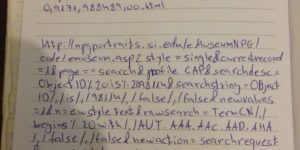 0,9171,988489,00.html
http://npgportraits.si.edu/eMuseumNPG/
code/emuseum.asp?style=single&currentrecord
=1&page==search&profile CAP&searchdesc=
Object ID/%20is
search string=Object
ID/,/is/,/98/
/,/false/,/false&newvalues
=1&n=ewstyle text&rawsearch=TermCN/,/
begins%20with/,/AUT.AAA.AAC.AAD.AHA
,/false/,/false&newaction=searchrequest